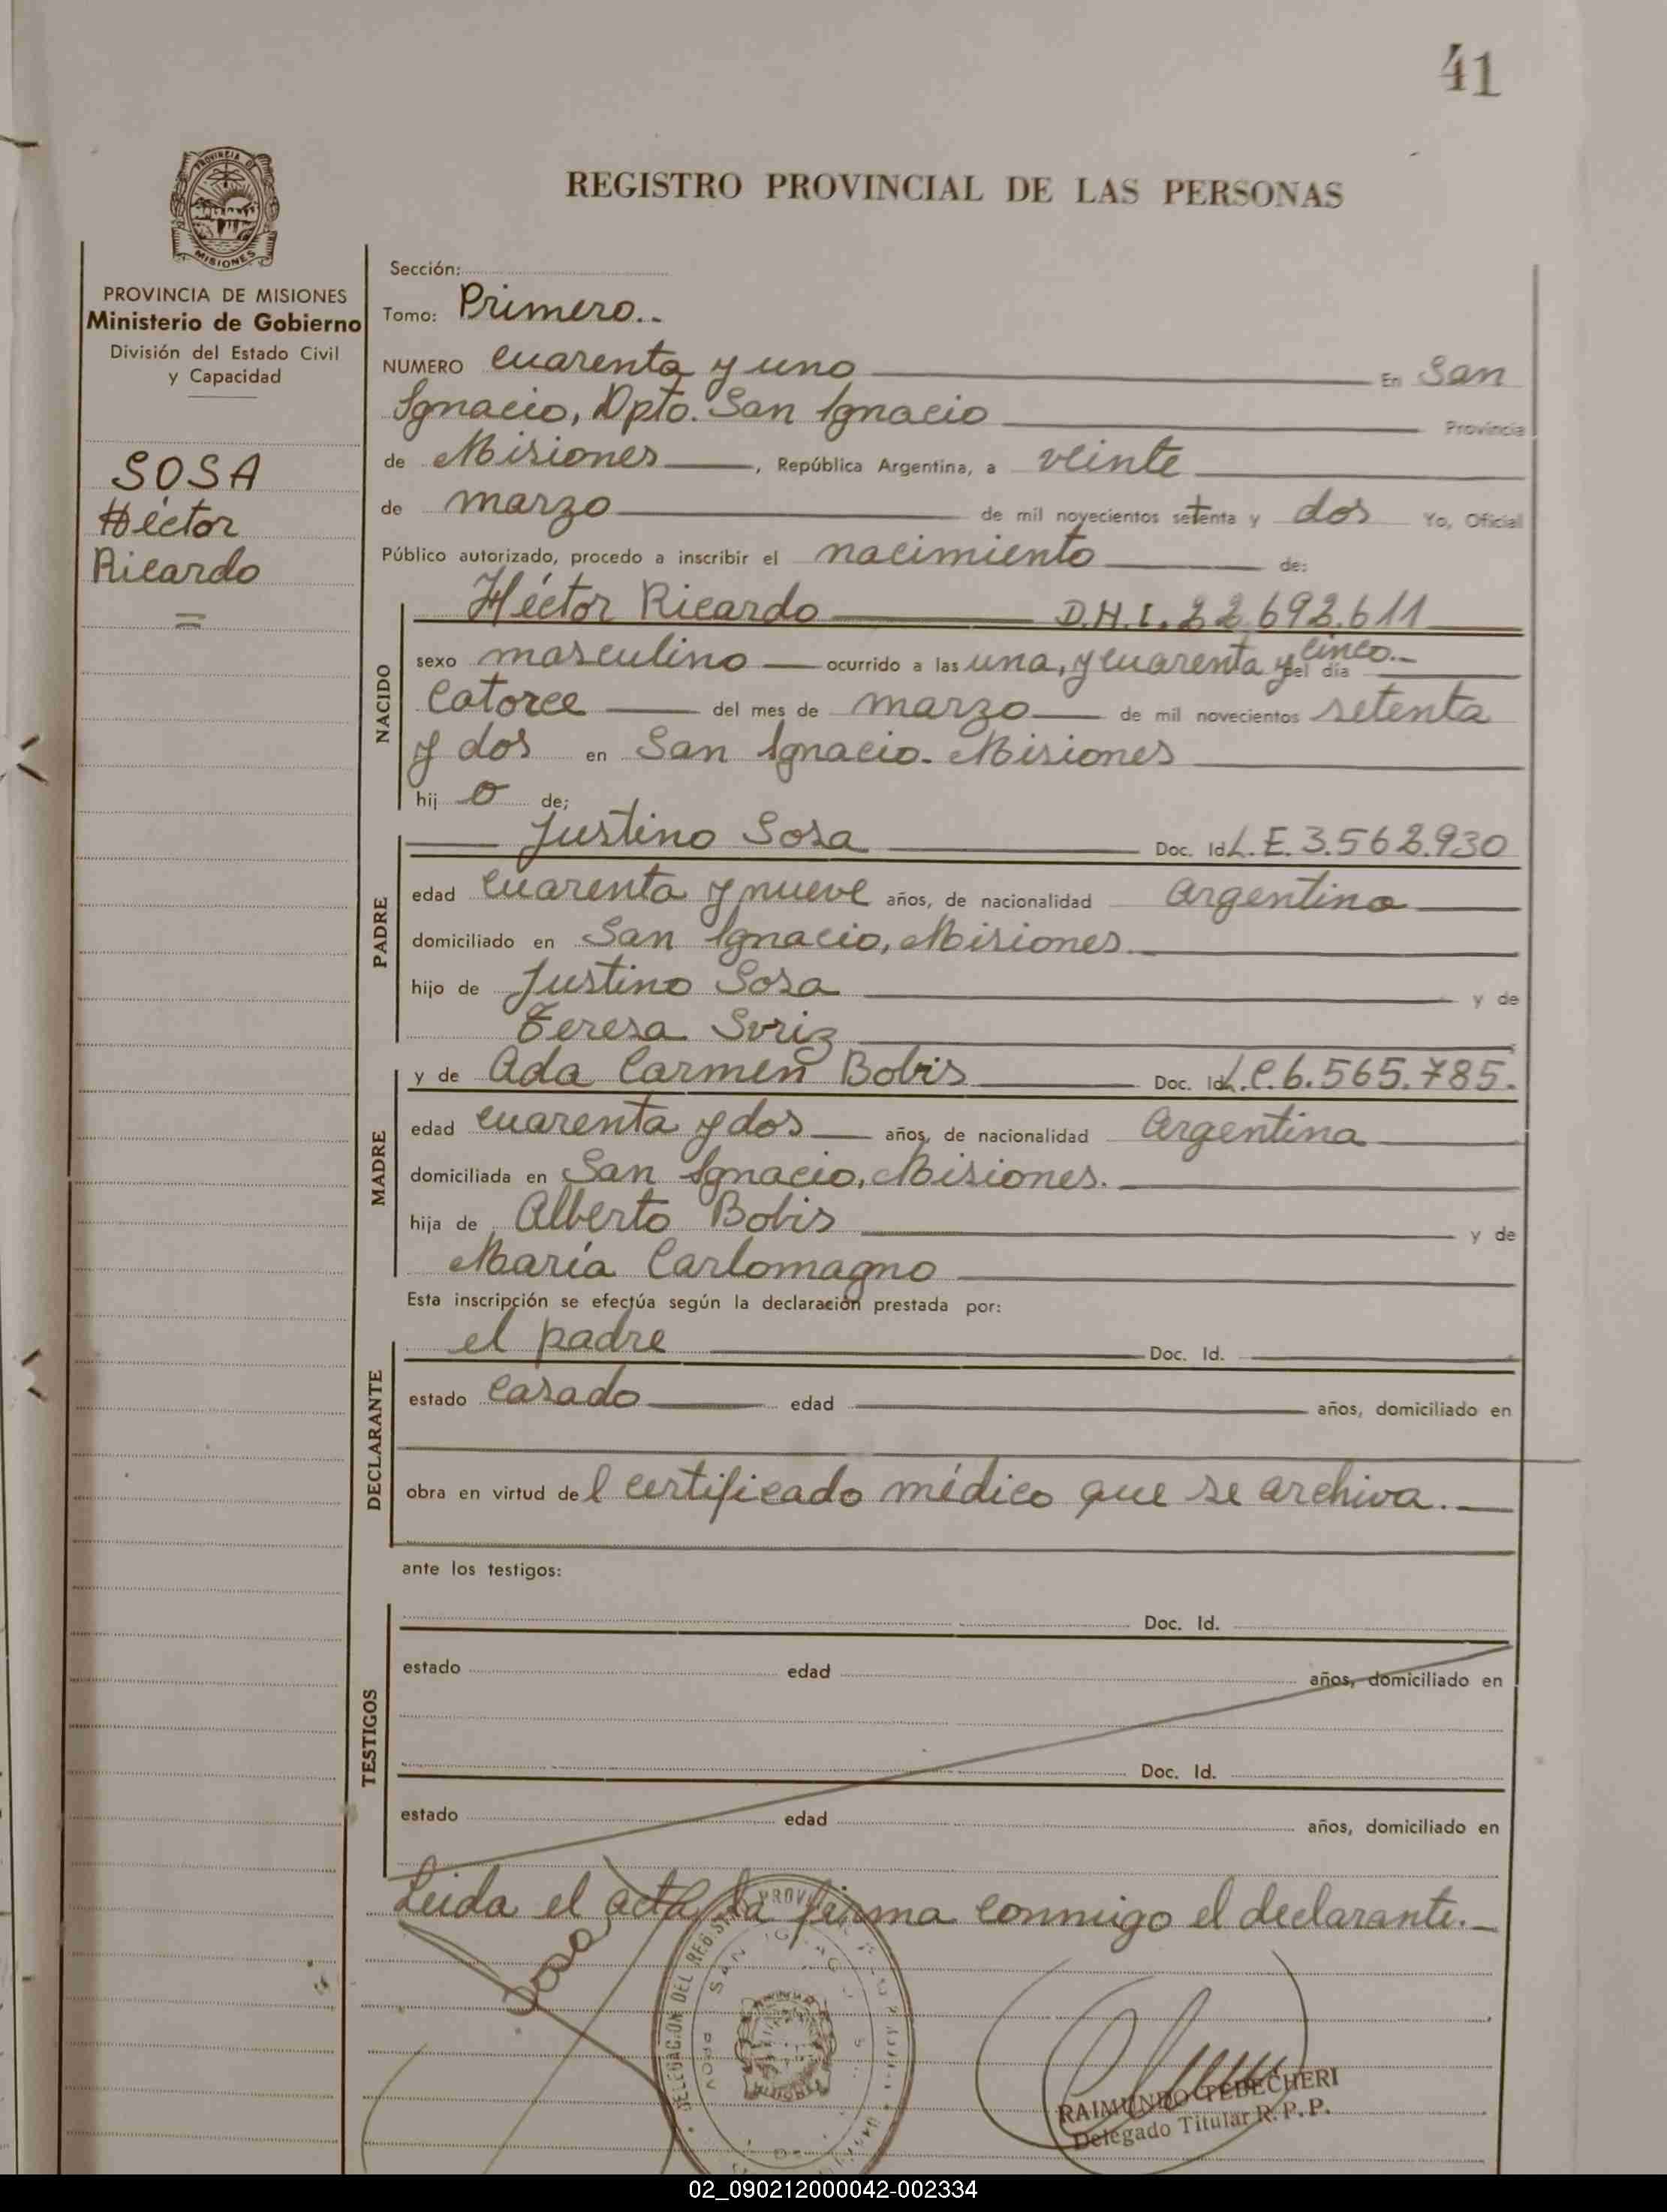 41
PROVINCIA DE
MISIONES
REGISTRO PROVINCIAL DE LAS PERSONAS
PROVINCIA DE MISIONES
Ministerio de Gobierno
División del Estado Civil
y Capacidad
SOSA
Héctor
Ricardo
Sección:
Tomo: Primero..
NUMERO cuarenta y uno En San
Ignacio, Dpto. San Ignacio Provincia
de Misiones, República Argentina, a veinte
de marzo de mil novecientos setenta y dos Yo, Oficial
Público autorizado, procedo a inscribir el nacimiento de:
NACIDO
Héctor Ricardo D.N.I. 22.692.611
sexo masculino ocurrido a las una, y cuarenta y cinco.- el día
catorce del mes de marzo de mil novecientos setenta
y dos en San Ignacio. Misiones
hij o de;
PADRE
Justino Sosa Doc. Id. L.E. 3.562.930
edad cuarenta y nueve años, de nacionalidad Argentina
domiciliado en San Ignacio, Misiones.
hijo de Justino Sosa y de
Teresa Svriz
MADRE
y de Ada Carmen Bobis Doc. Id. L.C. 6.565.785.
edad cuarenta y dos años, de nacionalidad Argentina
domiciliada en San Ignacio, Misiones.
hija de Alberto Bobis y de
María Carlomagno
Esta inscripción se efectúa según la declaración prestada por:
DECLARANTE
el padre Doc. Id.
estado casado edad años, domiciliado en
obra en virtud del certificado médico que se archiva.
ante los testigos:
TESTIGOS
Doc. Id.
estado edad años, domiciliado en
Doc. Id.
estado edad años, domiciliado en
Leida el acta la firma conmigo el declarante.
Sosa
DELEGACION DEL REGISTRO PROV
SAN IGNACIO
PROV
MISIONES
RAIMUNDO PEDECHERI
Delegado Titular R. P. P.
02_090212000042-002334